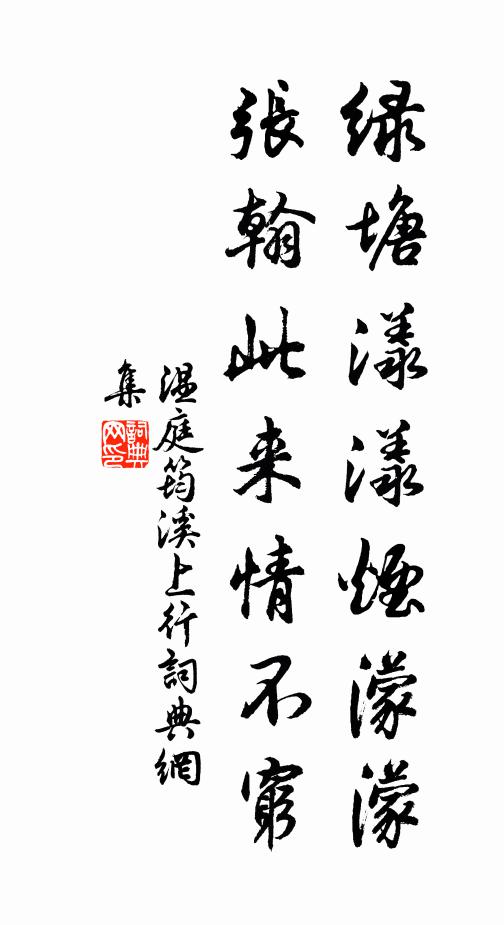 绿塘漾漾煙濛濛
張翰此来情不窮
温庭筠溪上行詞典網
集
詞典網印